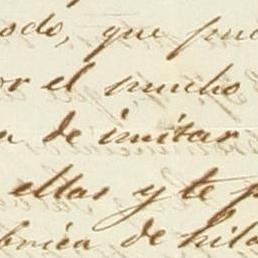 odo, que pu
or el mucho
a de imitar
ellas y te p
brica de hila